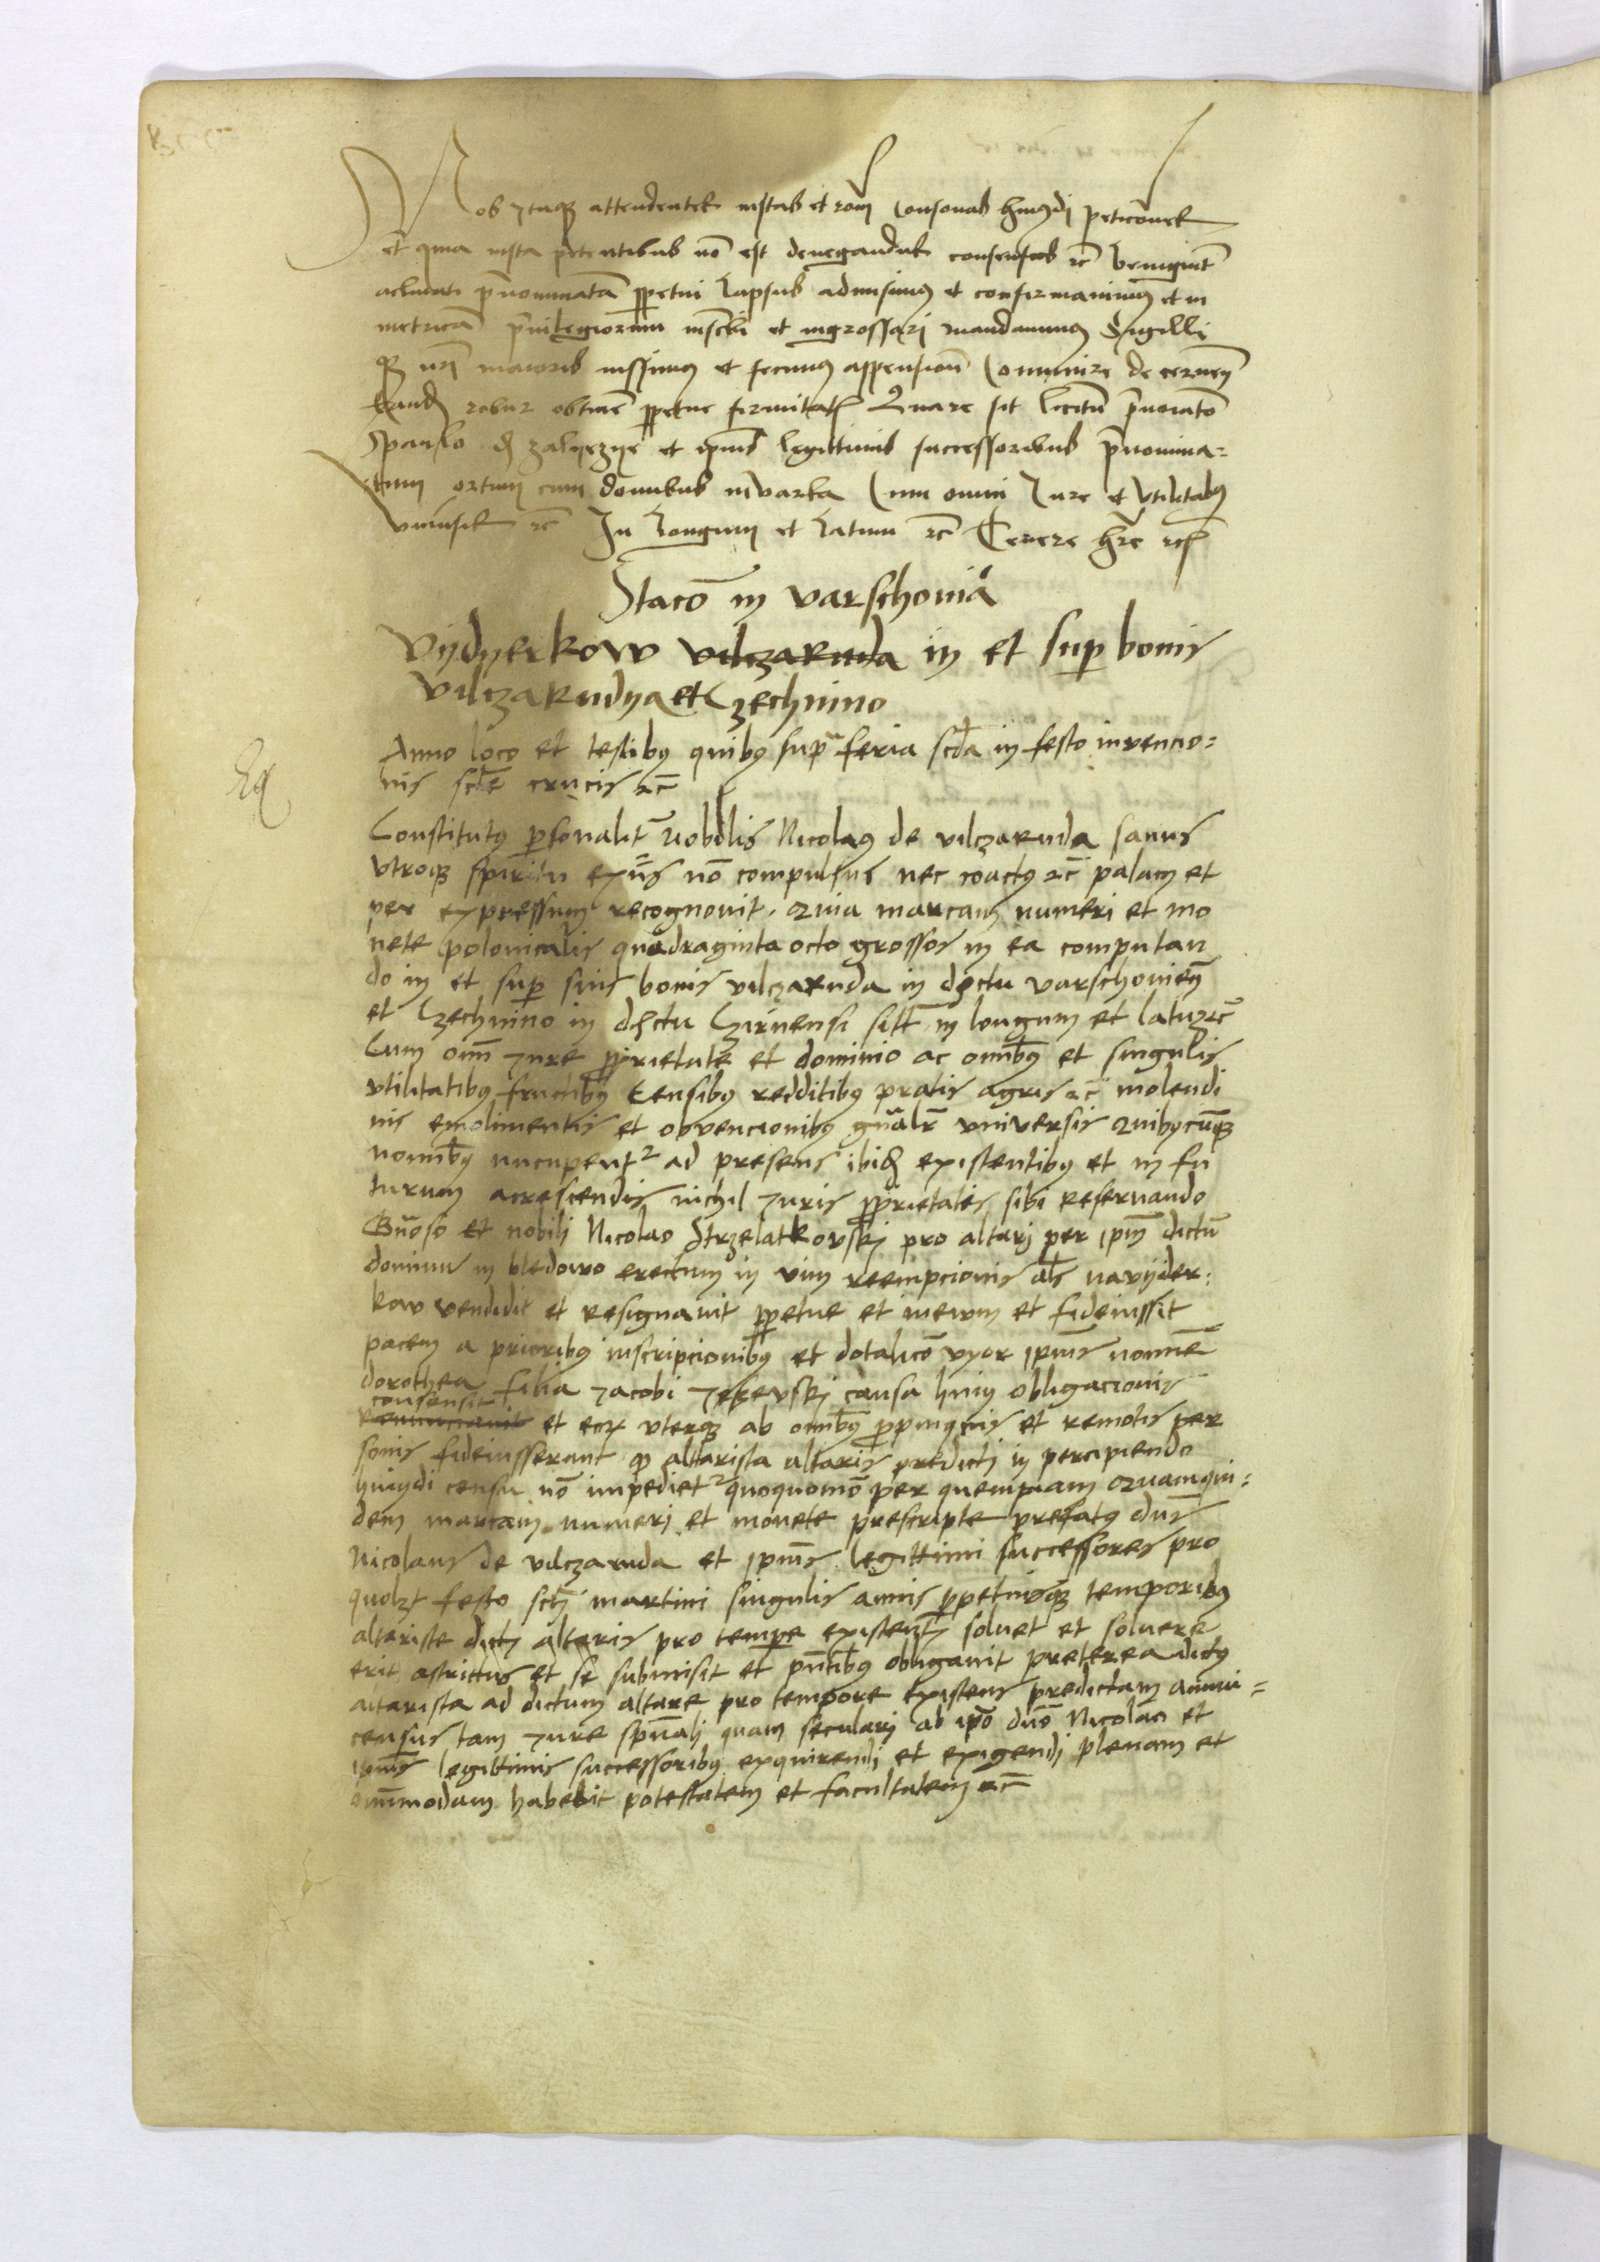 Nos itaque attendentes iustas et rom consonas hmodi peticones
et quia iusta petentibus no est denegandus consensus rc benignit
prnominatam ppetui lapsus admisimus et confirmavimus et in
metricam privilegiorum inscbi et ingrossari mandavimus Sigilli
q nri maioris iussimus et fecimus appension comunire decernen
robur obtine ppetue firmitatis Quare sit licitum prnoiato
paulo d zalyezye et ipius legittimis successoribus prnomina=
ortum cum domibus in varka cum omni Jure et utilitabus
univsis rc In Longum et Latum rc Tenere hre rc
Staco in varschovia
vydyerkow vilczaruda in et sup bonis
vilczarudya et Czechnino
Anno loco et testibus quibus supra feria scda in festo invencio=
nis scte crucis rc
Constitutus psonalit nobilis Nicolaus de vilczaruda sanus
utroque spiritu exns no compulsus nec coactus rc palam et
per expressum recognovit quia marcam numeri et mo
nete polonicalis quadraginta octo grossos in ea computan
do in et sup suis bonis vilczaruda in dstctu varschovien
et Czechnino in dstctu Czirnensi sitt in longum et latum rc
Cum omi Jure pprietate et dominio ac omibus et singulis
utilitatibus fructibus Censibus redditibus pratis agris rc molendi
nis emolimentis et obvencionibus gnalr universis quibuscumque
nomibus nucupent ad presens ibid existentibus et in fu
turum acrescendis nichil Juris pprietatis sibi reservando
Gnoso et nobili Nicolao Strzelatkovski pro altari per ipm dictu
dominu in bledowo erectum in vim reempcionis als navyder=
kow vendidit et resignavit ppetue et inewm et fideiussit
pacem a prioribus inscripcionibus et dotalico uxor ipius nomine
dorothea filia Jacobi causa huius obligacionis
consensit
renunciavit et eor uterque ab omibus ppinquis et remotis per
sonis fideiusserunt q altarista altaris predicti in percipiendo
huiusdi censu no impediet quoquomo per quempiam quamqui=
dem marcam numeri et monete prescripte prefatus dns
Nicolaus de vilczaruda et ipius legittimi successores pro
quolzt festo scti martini singulis annis ppetuisque temporibus
altariste dicti altaris pro tempe existenti solvet et solvere
erit astrictus et se submisit et pntibus obligavit preterea dictus
altarista ad dictum altare pro tempore existens predictam annui=
census tam Jure spuali quam seculari ab ipo dno Nicolao et
ipius legittimis successoribus exquirendi et exigendi plenam et
omimodam habebit potestatem et facultatem rc